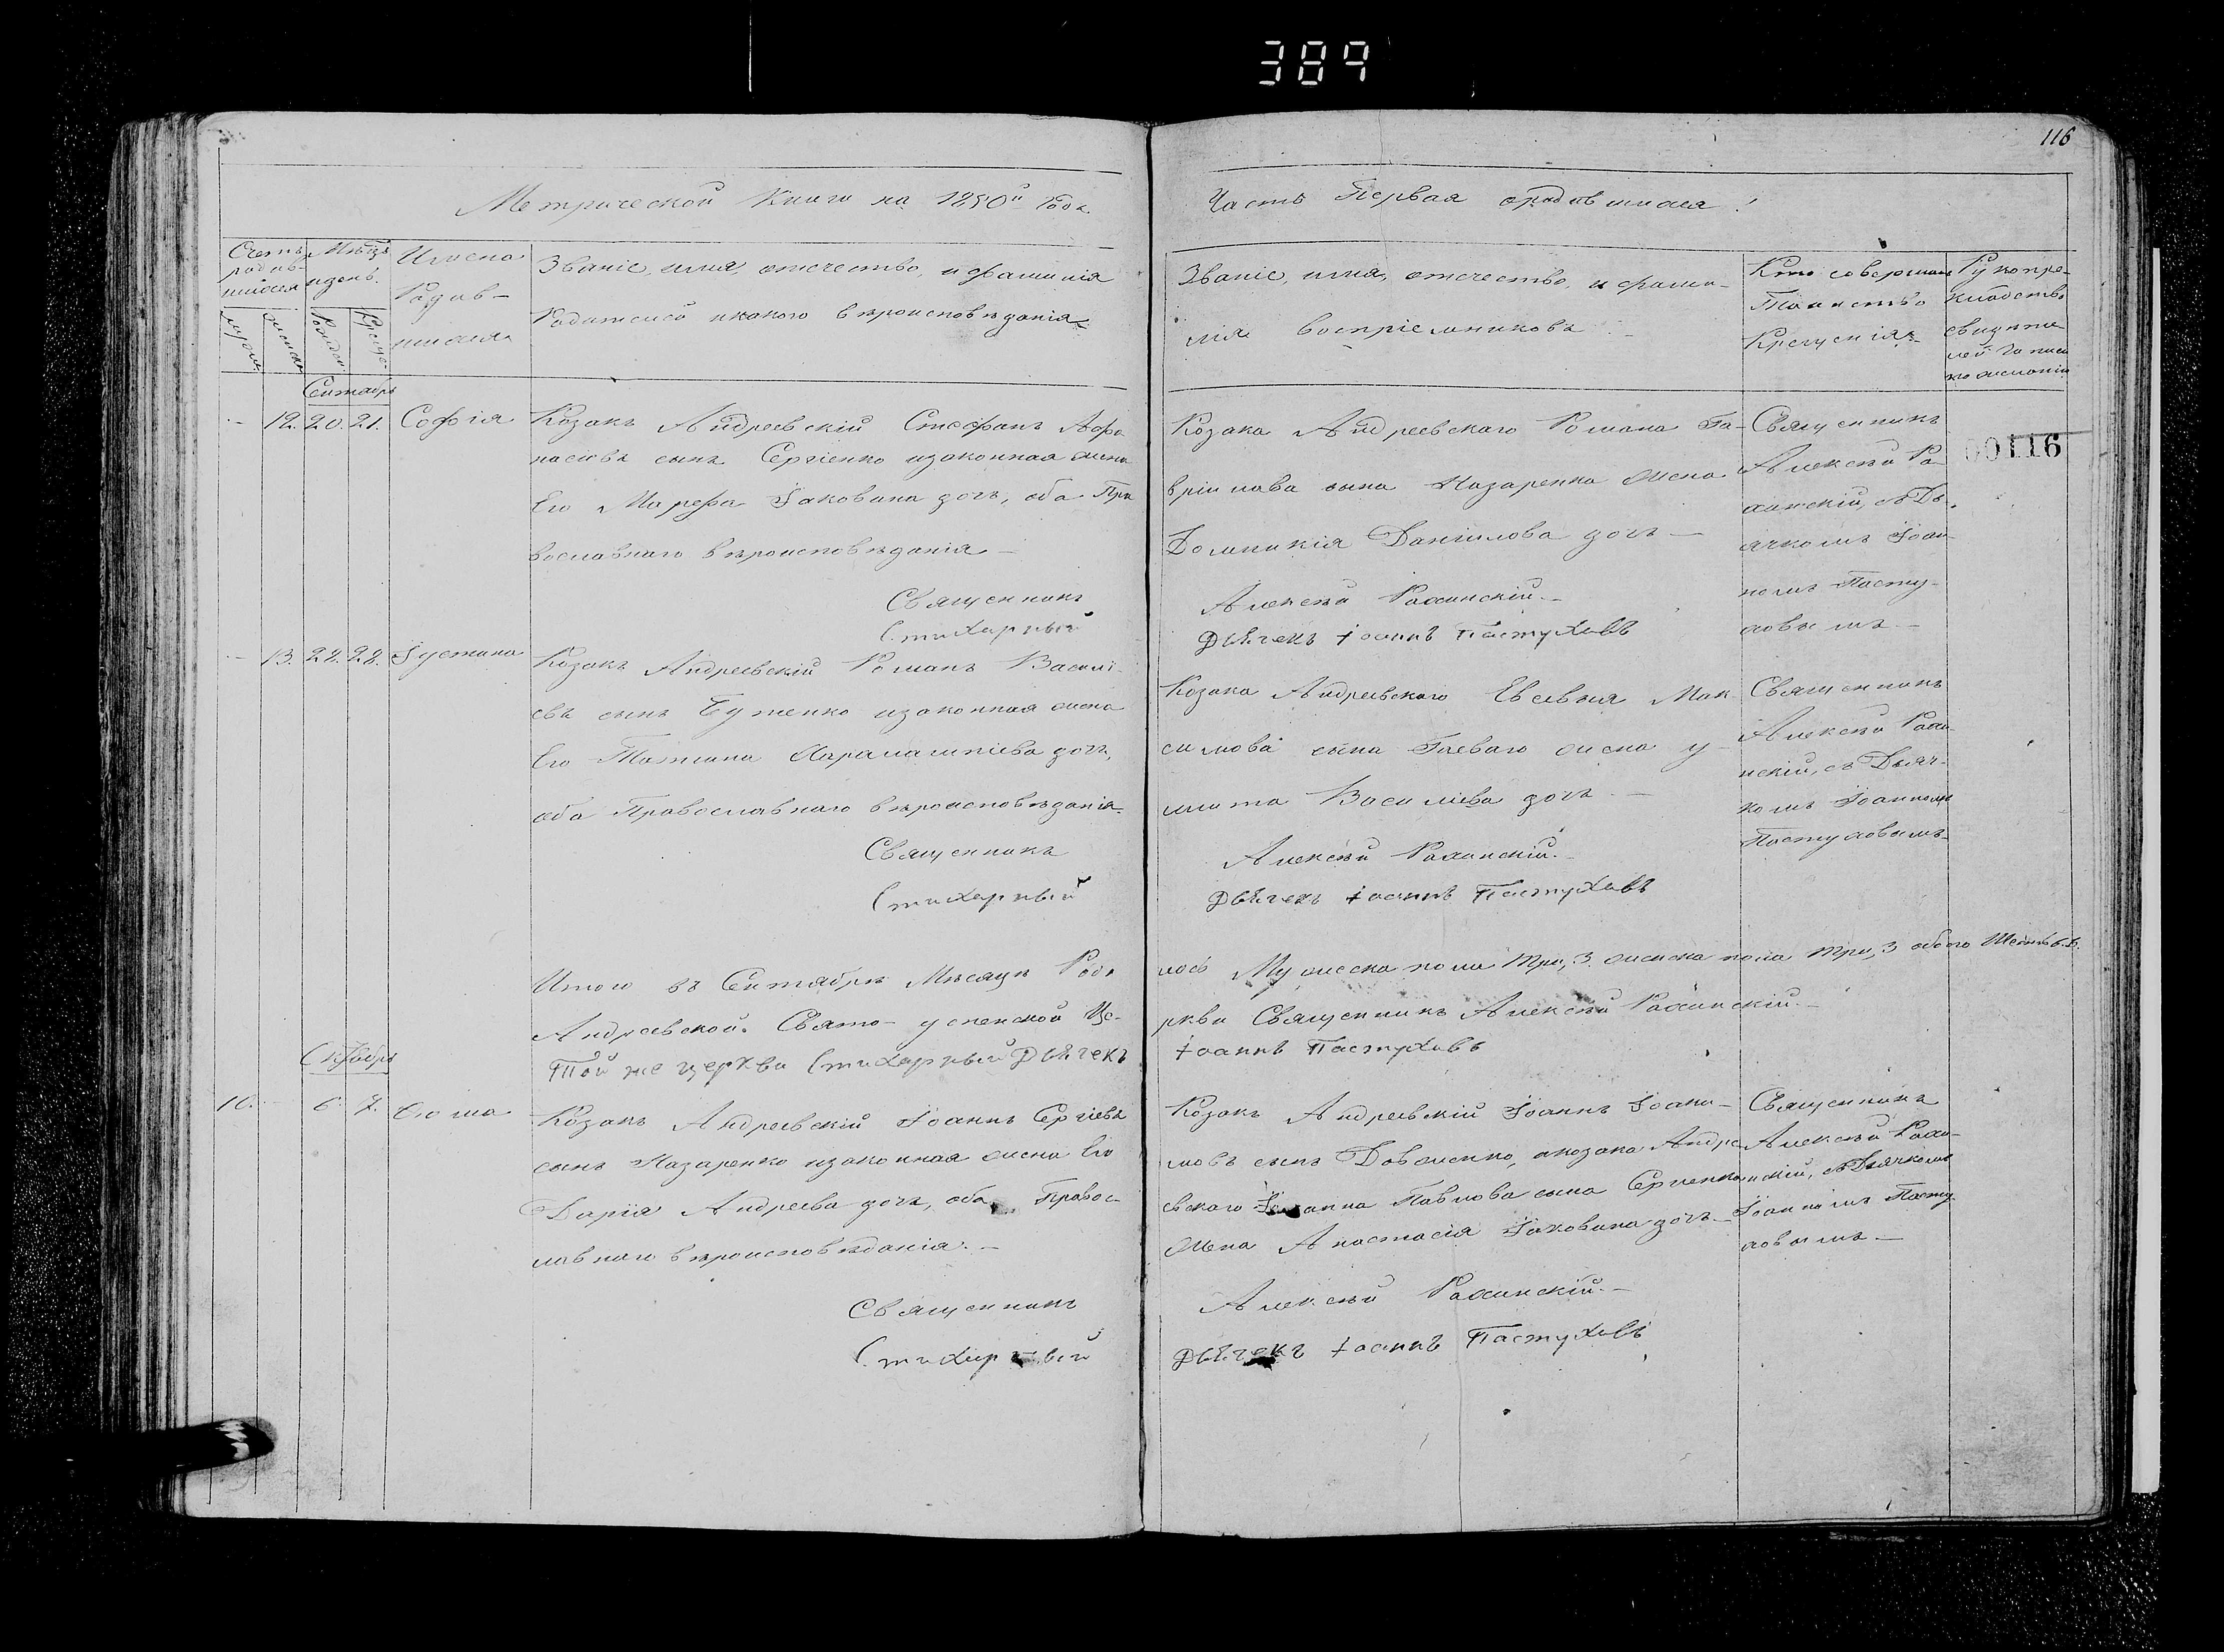 389
116
Метрической Книги на 1850й Года.
Часть Первая о родившихся.
Счетъ родив-шихся
Мѣсяцъ и день.
Имена Родив-шихся
Званіе, имя, отчество, и фамилія
Родителей и какого вѣроисповѣданія.
Званіе, имя, отчество, и фами-
лія воспріемниковъ.
Кто совершалъ
Таинство
Крещенія.
Рукопри-
кладство
свидѣте
лей
Сентябрь
12. 20. 21. Софія
Козакъ Андреевскій Стефанъ Афа
насіевъ сынъ Сергіенко и законная жена
Его Марфа Іаковина дочь, оба Пра
вославнаго вѣроисповѣданія —
Козака Андреевскаго Романа Га-
вріилова сына Назаренка жена
Домникія Даніилова дочь —
Священникъ
Алексѣй Ра
хинскій, съ Дь
ячкомъ Іоан
номъ Пасту-
ховымъ —
00116
Священникъ
Алексѣй Рахинскій. —
Стихарный
Дьячекъ Іоаннъ Пастуховъ
13. 22. 22. Іустина
Козакъ Андреевскій Романъ Васили-
евъ сынъ Бутенко и законная жена
Его Татіана Харалампіева дочь,
оба Православнаго вѣроисповѣданія.
Козака Андреевскаго Евсевія Мак
симова сына Гаеваго жена У
лита Василіева дочь. —
Священникъ
Алексѣй Рахи-
нскій, съ Дьяч-
комъ Іоанномъ
Пастуховымъ
Священникъ
Алексѣй Рахинскій. —
Стихарный
Дьячекъ Іоаннъ Пастуховъ
Итого въ Сентябрѣ Мѣсяцѣ Роди
лось Мужеска пола три, 3. женска пола три, 3 обоего Шесть 6.
Андреевской Свято-успенской Це-
ркви Священникъ Алексѣй Рахинскій. —
Той же церкви Стихарный Дьячекъ
Іоаннъ Пастуховъ
Октябрь
10. 6. 7. Ѳома
Козакъ Андреевскій Іоаннъ Сергіевъ
сынъ Назаренко и законная жена Его
Дарія Андреева дочь, оба Правос-
лавнаго вѣроисповѣданія. —
Козакъ Андреевскій Іоаннъ Іоаки-
мовъ сынъ Довженко, и козака Андре
евскаго Іоанна Павлова сына Сергіенка
жена Анастасія Іаковина дочь —
Священникъ
Алексѣй Рахи-
нскій, съ Дьячкомъ
Іоанномъ Пасту
ховымъ —
Священникъ
Алексѣй Рахинскій. —
Стихарный
Дьячекъ Іоаннъ Пастуховъ